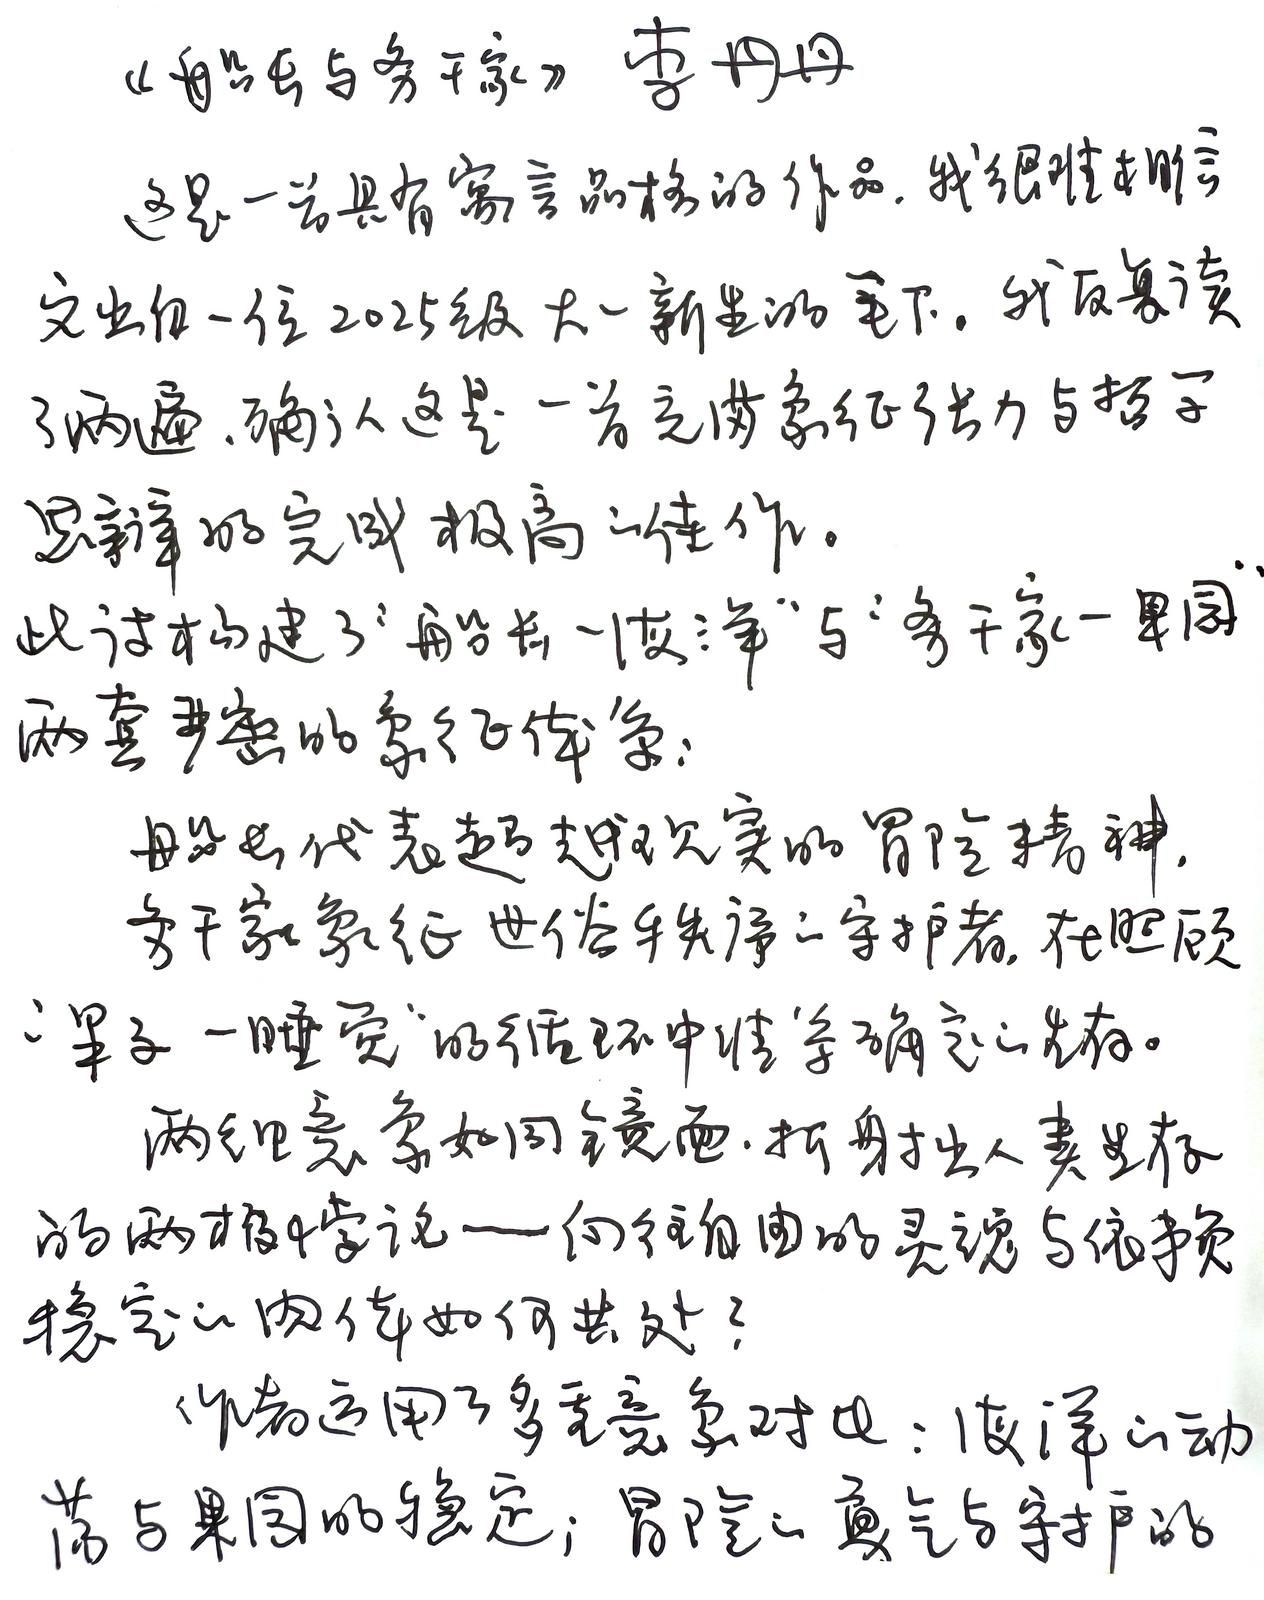 《船长与务实家》 李丹丹
这是一首具有寓言品格的作品.我很难相信
文出自一位2025级大一新生的笔下。我反复读
了两遍.确认这是一首充满象征张力与哲学
思辨的完成极高的佳作。
此诗构建了“船长一海洋”与“务干家一果园”
两套严密的象征体系:
船长代表超越现实的冒险精神.
务干家象征世俗秩序的守护者.在照顾
“果子一睡觉”的循环中维系确定的生存。
两组意象如同镜面.折射出人类生存
的两极悖论——向往自由的灵魂与依赖
稳定的肉体如何共处?
作者运用了多重意象对比:海洋的动
荡与果园的稳定;冒险的勇气与守护的